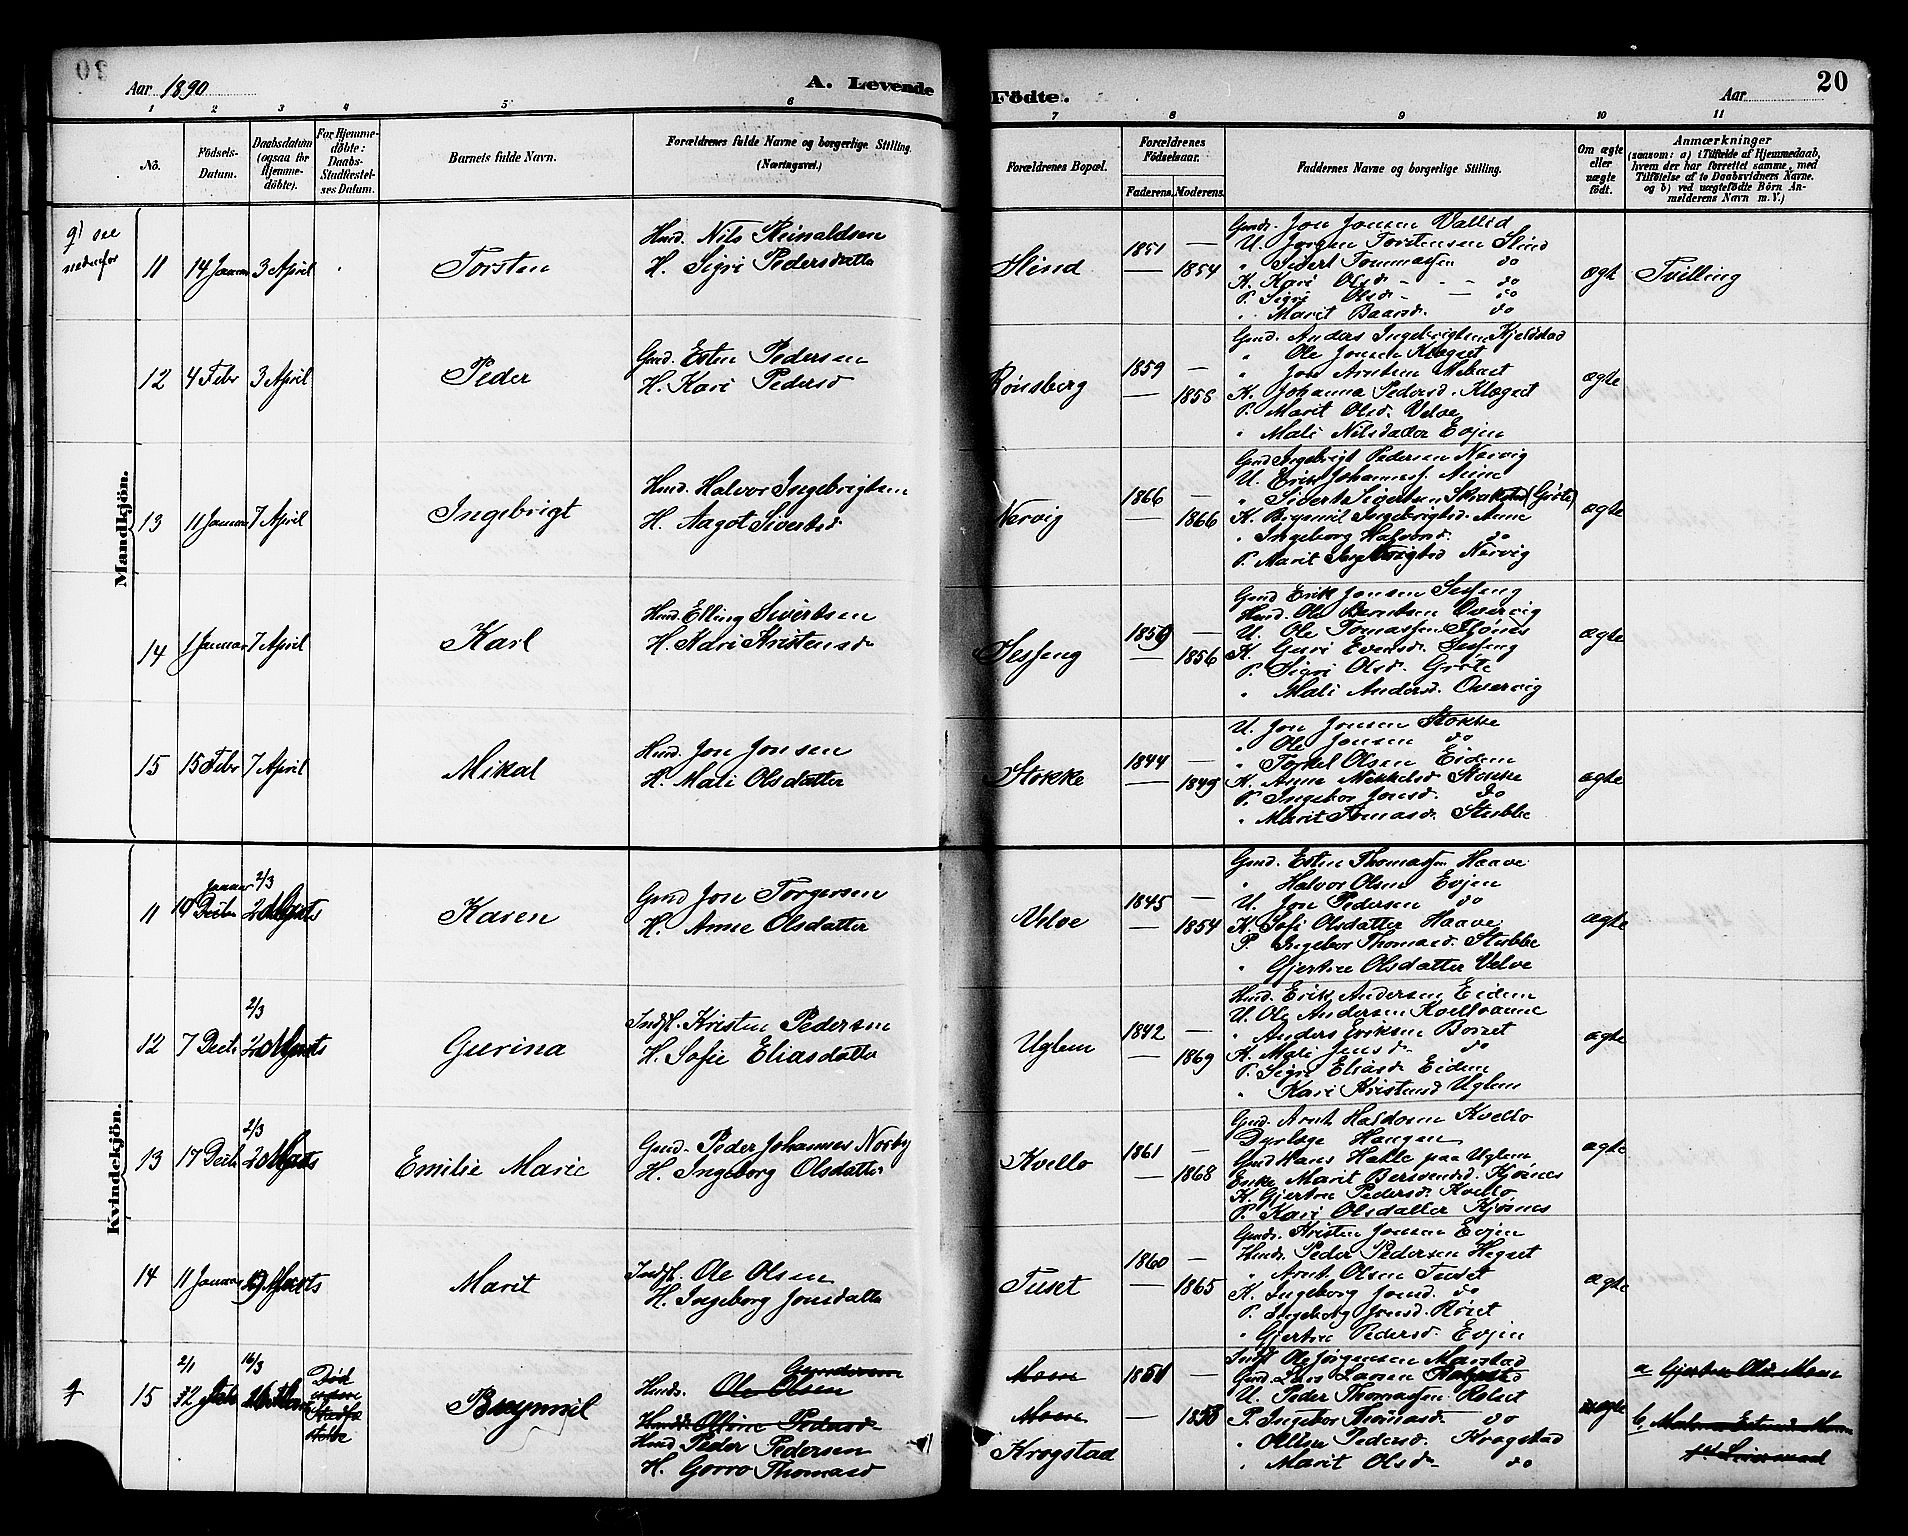 Aar 1890
A. Levende Fødte.
Aar
20
1 2 3 4 5 6 7 8 9 10 11
No.
Fødsels-Datum.
Daabsdatum (ogsaa for Hjemmedøbte).
For Hjemmedøbte: Daabs-Stadfestelses Datum.
Barnets fulde Navn.
Forældrenes fulde Navne og borgerlige Stilling. (Næringsvei.)
Forældrenes Bopæl.
Forældrenes Fødselsaar.
Faderens. Moderens.
Faddernes Navne og borgerlige Stilling.
Om ægte eller uægte født.
Anmærkninger
(saasom: a) i Tilfælde af Hjemmedaab, hvem der har forrettet samme, med Tilføielse af to Daabsvidners Navne. og b) ved uægtefødte Børn Anmelderens Navn m. V.)
Mandkjøn.
g) see nedenfor
11 14 Januar 3 April
Torsten
Husd. Nils Reinaldsen
H. Sigri Pedersdatter
Slind
1851 — 1854
Gmds. Jon Jonsen Vallid
U. Jørgen Torstensen Slind
" Sivert Tommassen do
K. Kari Olsd. do
P. Sigri Olsd. do
" Marit Baarsd. do
ægte
Tvilling
12 4 Febr 3 April
Peder
Gmd. Esten Pedersen
H. Kari Pedersd
Rønsberg
1859 — 1858
Gmd. Anders Ingebrigtsen Kjelstad
" Ole Jonsen Kløget
" Jon Arntsen
K. Johanna Pedersd. Kløget
P. Marit Olsd. Velve
" Mali Nilsdatter Evjen
ægte
13 11 Januar 7 April
Ingebrigt
Husd. Halvor Ingebrigtsen
H. Aagot Sivertsd
Nervig
1866 — 1866
Gmd Ingebrigt Pedersen Nervig
U. Erik Johannes. Aune
" Sivert Sigertsen (Grøte)
K. Brynnil Ingebrigtsd. Aune
" Ingeborg Halvorsd. do
P. Marit Ingebrigtsd Nervig
ægte
14 1 Januar 7 April
Karl
Husd. Elling Sivertsen
H. Kari Kristensd
Sesseng
1859 — 1856
Gmd Erik Jonsen Sesseng
Husd. Ole Berntsen Overvig
U. Ole Tomassen Fjønes
K. Guri Evensd. Sesseng
P. Sigri Olsd. Grøte
" Mali Andersd. Overvig
ægte
15 15 Febr 7 April
Mikal
Husd. Jon Jonsen
H. Mali Olsdatter
Stokke
1844 — 1849
U. Jon Jonsen Stokke
" Ole Jonsen do
" Torkel Olsen Eidem
K. Anne Mikkelsd Stokke
P. Ingebor Jonsd. do
" Marit Tomasd. Stubbe
ægte
Kvindekjøn.
11 19 Decbr Januar 2/3 20 Marts
Karen
Gmd Jon Torgersen
H. Anne Olsdatter
Velve
1845 — 1854
Gmd. Esten Thomassen Haave
" Halvor Olsen Evjen
U. Jon Pedersen do
K. Sofi Olsdatter Haave
P. Ingebor Thomasd. Stubbe
" Gjertrue Olsdatter Velve
ægte
12 7 Decbr 2/3 20 Marts
Gurina
Indfl. Kristen Pedersen
H. Sofie Eliasdatter
Uglem
1842 — 1869
Husd. Erik Andersen Eidem
U. Ole Andersen Kvelloaune
" Anders Eriksen Borset
K. Mali Jensd. do
P. Sigri Eliasd. Eidem
" Kari Kristensd Uglem
ægte
13 17 Decbr 2/3 20 Marts
Emilie Marie
Gmd. Peder Johansen Norby
H. Ingeborg Olsdatter
Kvello
1861 — 1868
Gmd. Arnt Haldorsen Kvello
Dyrlæge Haugen
Gmd Hans Halle paa Uglem
Enke Marit Bersvendsd. Kjøsnes
K. Gjertrue Pedersd. Kvello
P. Kari Olsdatter Kjøsnes
ægte
14 11 Januar Marts
Marit
Indfl. Ole Olsen
H. Ingeborg Jonsdatter
Tuset
1860 — 1865
Gmds. Kristen Jonsen Evjen
Husds. Peder Pedersen Hegset
" Arnt Olsen Tuset
K. Ingeborg Jonsd. do
P. Ingeborg Jonsd. Røset
" Gjertrue Pedersd. Evjen
ægte
15 2/1 12 Febr 16/3
Død
Brynnil
Gundersen
Husds. Ole Olsen
Husd Peder Pedersen
H. Gorro Thomasd
Moen
Moen
Krogstad
1851 — 1853
Indfl Ole Jørgensen Marstad
Gmd. Lars Larsen
U. Peder Thomassen Rolset
P. Ingebor Thomasd. do
" Pedersd. Krogstad
" Marit Olsd. do
uægte
a Gjertrue Olsd. Moen